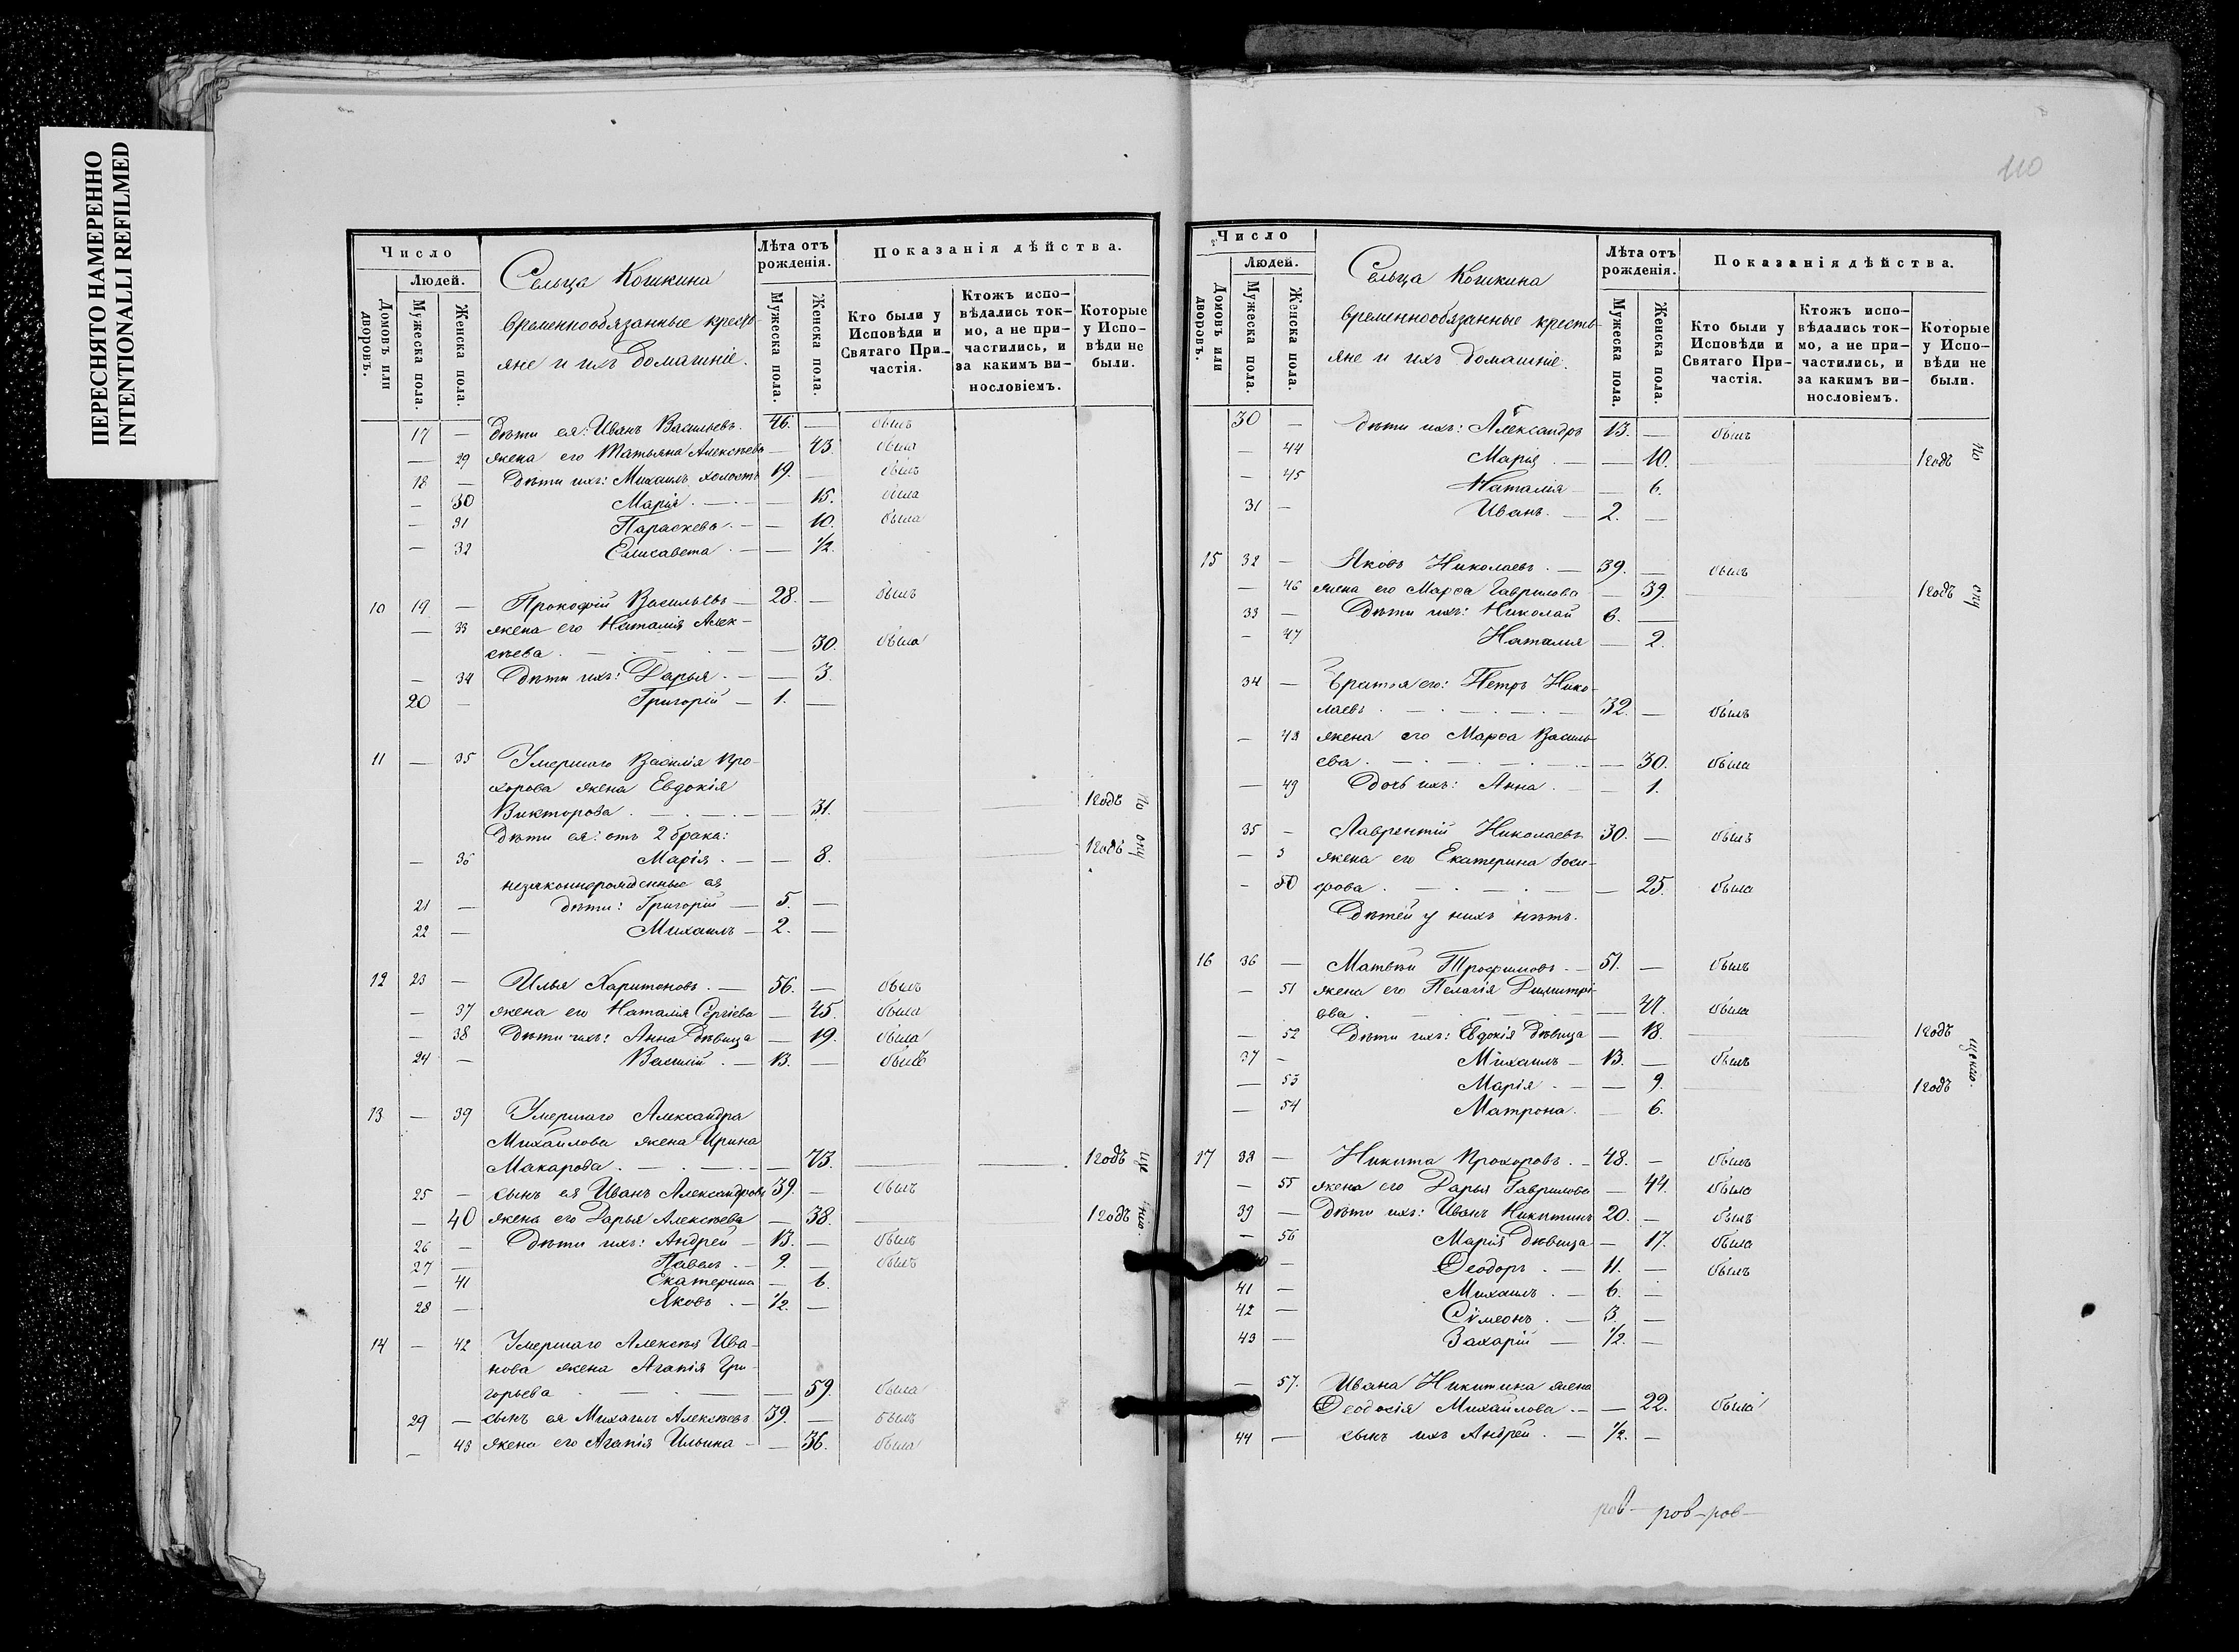 ПЕРЕСНЯТО НАМЕРЕННО
INTENTIONALLI REFILMED
110
Число
Людей.
Домовъ или дворовъ.
Мужеска пола.
Женска пола.
Сельца Кошкина
временнообязанные кресть-
яне и ихъ домашніе.
Лѣта отъ рожденія.
Мужеска пола.
Женска пола.
Показанія дѣйства.
Кто были у Исповѣди и Святаго При-частія.
Ктожъ испо-вѣдались ток-мо, а не при-частились, и за какимъ ви-нословіемъ.
Которые у Испо-вѣди не были.
17 — дѣти ея: Иванъ Васильевъ. 46. — былъ
— 29 жена его Татьяна Алексѣева — 43. была
18 — Дѣти ихъ: Михаилъ холостъ 19. — былъ
— 30 Марія. — — 15. была
— 31 Параскева. — — 10. была
— 32 Елисавета. — — 1/2.
10 19 — Прокофій Васильевъ — 28. — былъ
— 33 жена его Наталія Алек-
сѣева. — 30. была
— 34 Дѣти ихъ: Дарья. — — 3.
20 — Григорій — 1. —
11 — 35 Умершаго Василія Про-
хорова жена Евдокія
Викторова. — 31. 1 годъ
Дѣти ея: отъ 2 брака:
— 36 Марія. — — 8. 1 годъ
незаконнорожденные ея
21 — дѣти: Григорій — 5. —
22 — Михаилъ — 2. —
12 23 — Илья Харитоновъ. — 56. — былъ
— 37 жена его Наталія Сергіева — 45. была
— 38 Дѣти ихъ: Анна Дѣвица — 19. была
24 — Василій. — 13. — былъ
13 — 39 Умершаго Александра
Михайлова жена Ирина
Макарова. — 73. 1 годъ
25 — сынъ ея Иванъ Александровъ 39. — былъ
— 40 жена его Дарья Алексѣева — 38. 1 годъ
26 — Дѣти ихъ: Андрей — 13. — былъ
27 — Павелъ. — 9. — былъ
— 41 Екатерина — 6.
28 — Яковъ. — 1/2. —
14 — 42 Умершаго Алексѣя Ива-
нова жена Агапія Гри-
горьева — 59. была
29 — сынъ ея Михаилъ Алексѣевъ 39. — былъ
— 43 жена его Агапія Ильина — — 36. была
По опу ще нію
Число
Людей.
Домовъ или дворовъ.
Мужеска пола.
Женска пола.
Сельца Кошкина
временнообязанные кресть-
яне и ихъ домашніе.
Лѣта отъ рожденія.
Мужеска пола.
Женска пола.
Показанія дѣйства.
Кто были у Исповѣди и Святаго При-частія.
Ктожъ испо-вѣдались ток-мо, а не при-частились, и за какимъ ви-нословіемъ.
Которые у Испо-вѣди не были.
30 — дѣти ихъ: Александръ 13. — былъ
— 44 Марья. — — 10. 1 годъ
— 45 Наталія — 6.
31 — Иванъ. — 2. —
15 32 — Яковъ Николаевъ. — 39. — былъ
— 46 жена его Марѳа Гаврилова — 39. 1 годъ
33 — Дѣти ихъ: Николай 6. —
— 47 Наталия — 2.
34 — Братья его: Петръ Нико-
лаевъ. 32. — былъ
— 48 жена его Марѳа Василь-
ева. — 30. была
— 49 Дочь ихъ: Анна. — — 1.
35 — Лаврентій Николаевъ 30. — былъ
жена его Екатерина Іоси-
— 50 фова. — 25. была
Дѣтей у нихъ нѣтъ.
16 36 — Матвѣй Трофимовъ. — 51. — былъ
— 51 жена его Пелагія Димитрі-
ева. — 47. была
— 52 Дѣти ихъ: Евдокія Дѣвица — 18. 1 годъ
37 — Михаилъ — 13. — былъ
— 53 Марія. — — 9. 1 годъ
— 54 Матрона. — 6.
17 38 — Никита Прохоровъ. — 48. — былъ
— 55 жена его Дарья Гаврилова — 44. была
39 — Дѣти ихъ: Иванъ Никитинъ 20. — былъ
— 56 Марія Дѣвица — 17. была
— Ѳеодоръ. — 11. — былъ
41 — Михаилъ. — 6. —
42 — Сѵмеонъ. — 3. —
43 — Захарій — 1/2. —
— 57. Ивана Никитина жена
Ѳеодосія Михайлова. — — 22. была
44 — сынъ ихъ Андрей. — 1/2. —
По опу щенію.
ров — ров — ров —